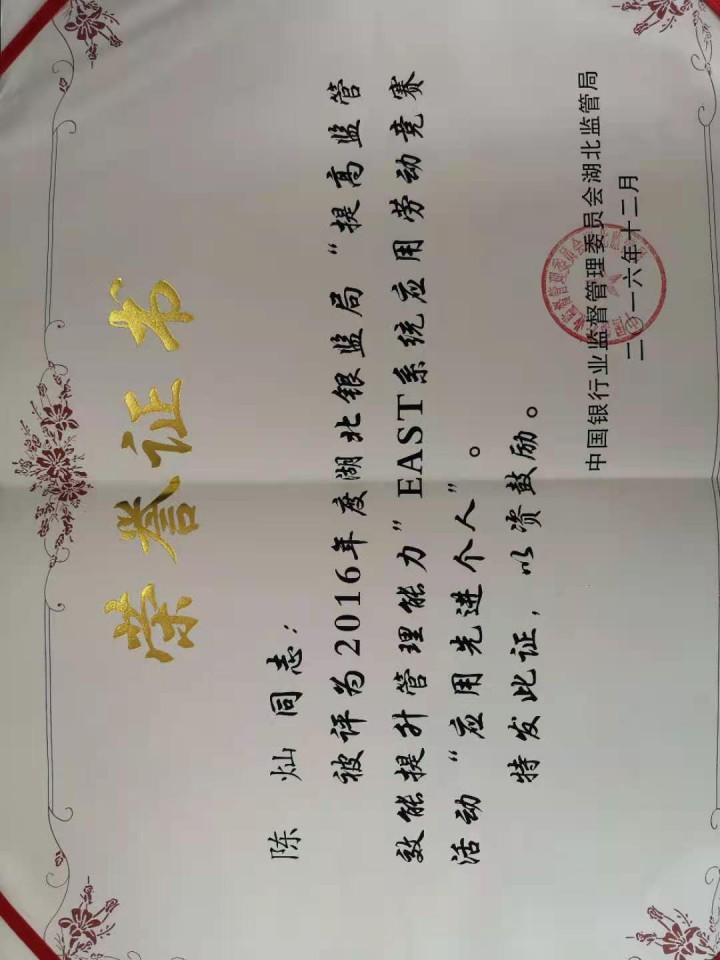 荣誉证书
陈 灿 同志：
被评为2016年度湖北银监局“提高监管
效能提升管理能力”EAST系统应用劳动竞赛
活动“应用先进个人”。
特发此证，以资鼓励。
中国银行业监督管理委员会湖北监管局
二〇一六年十二月